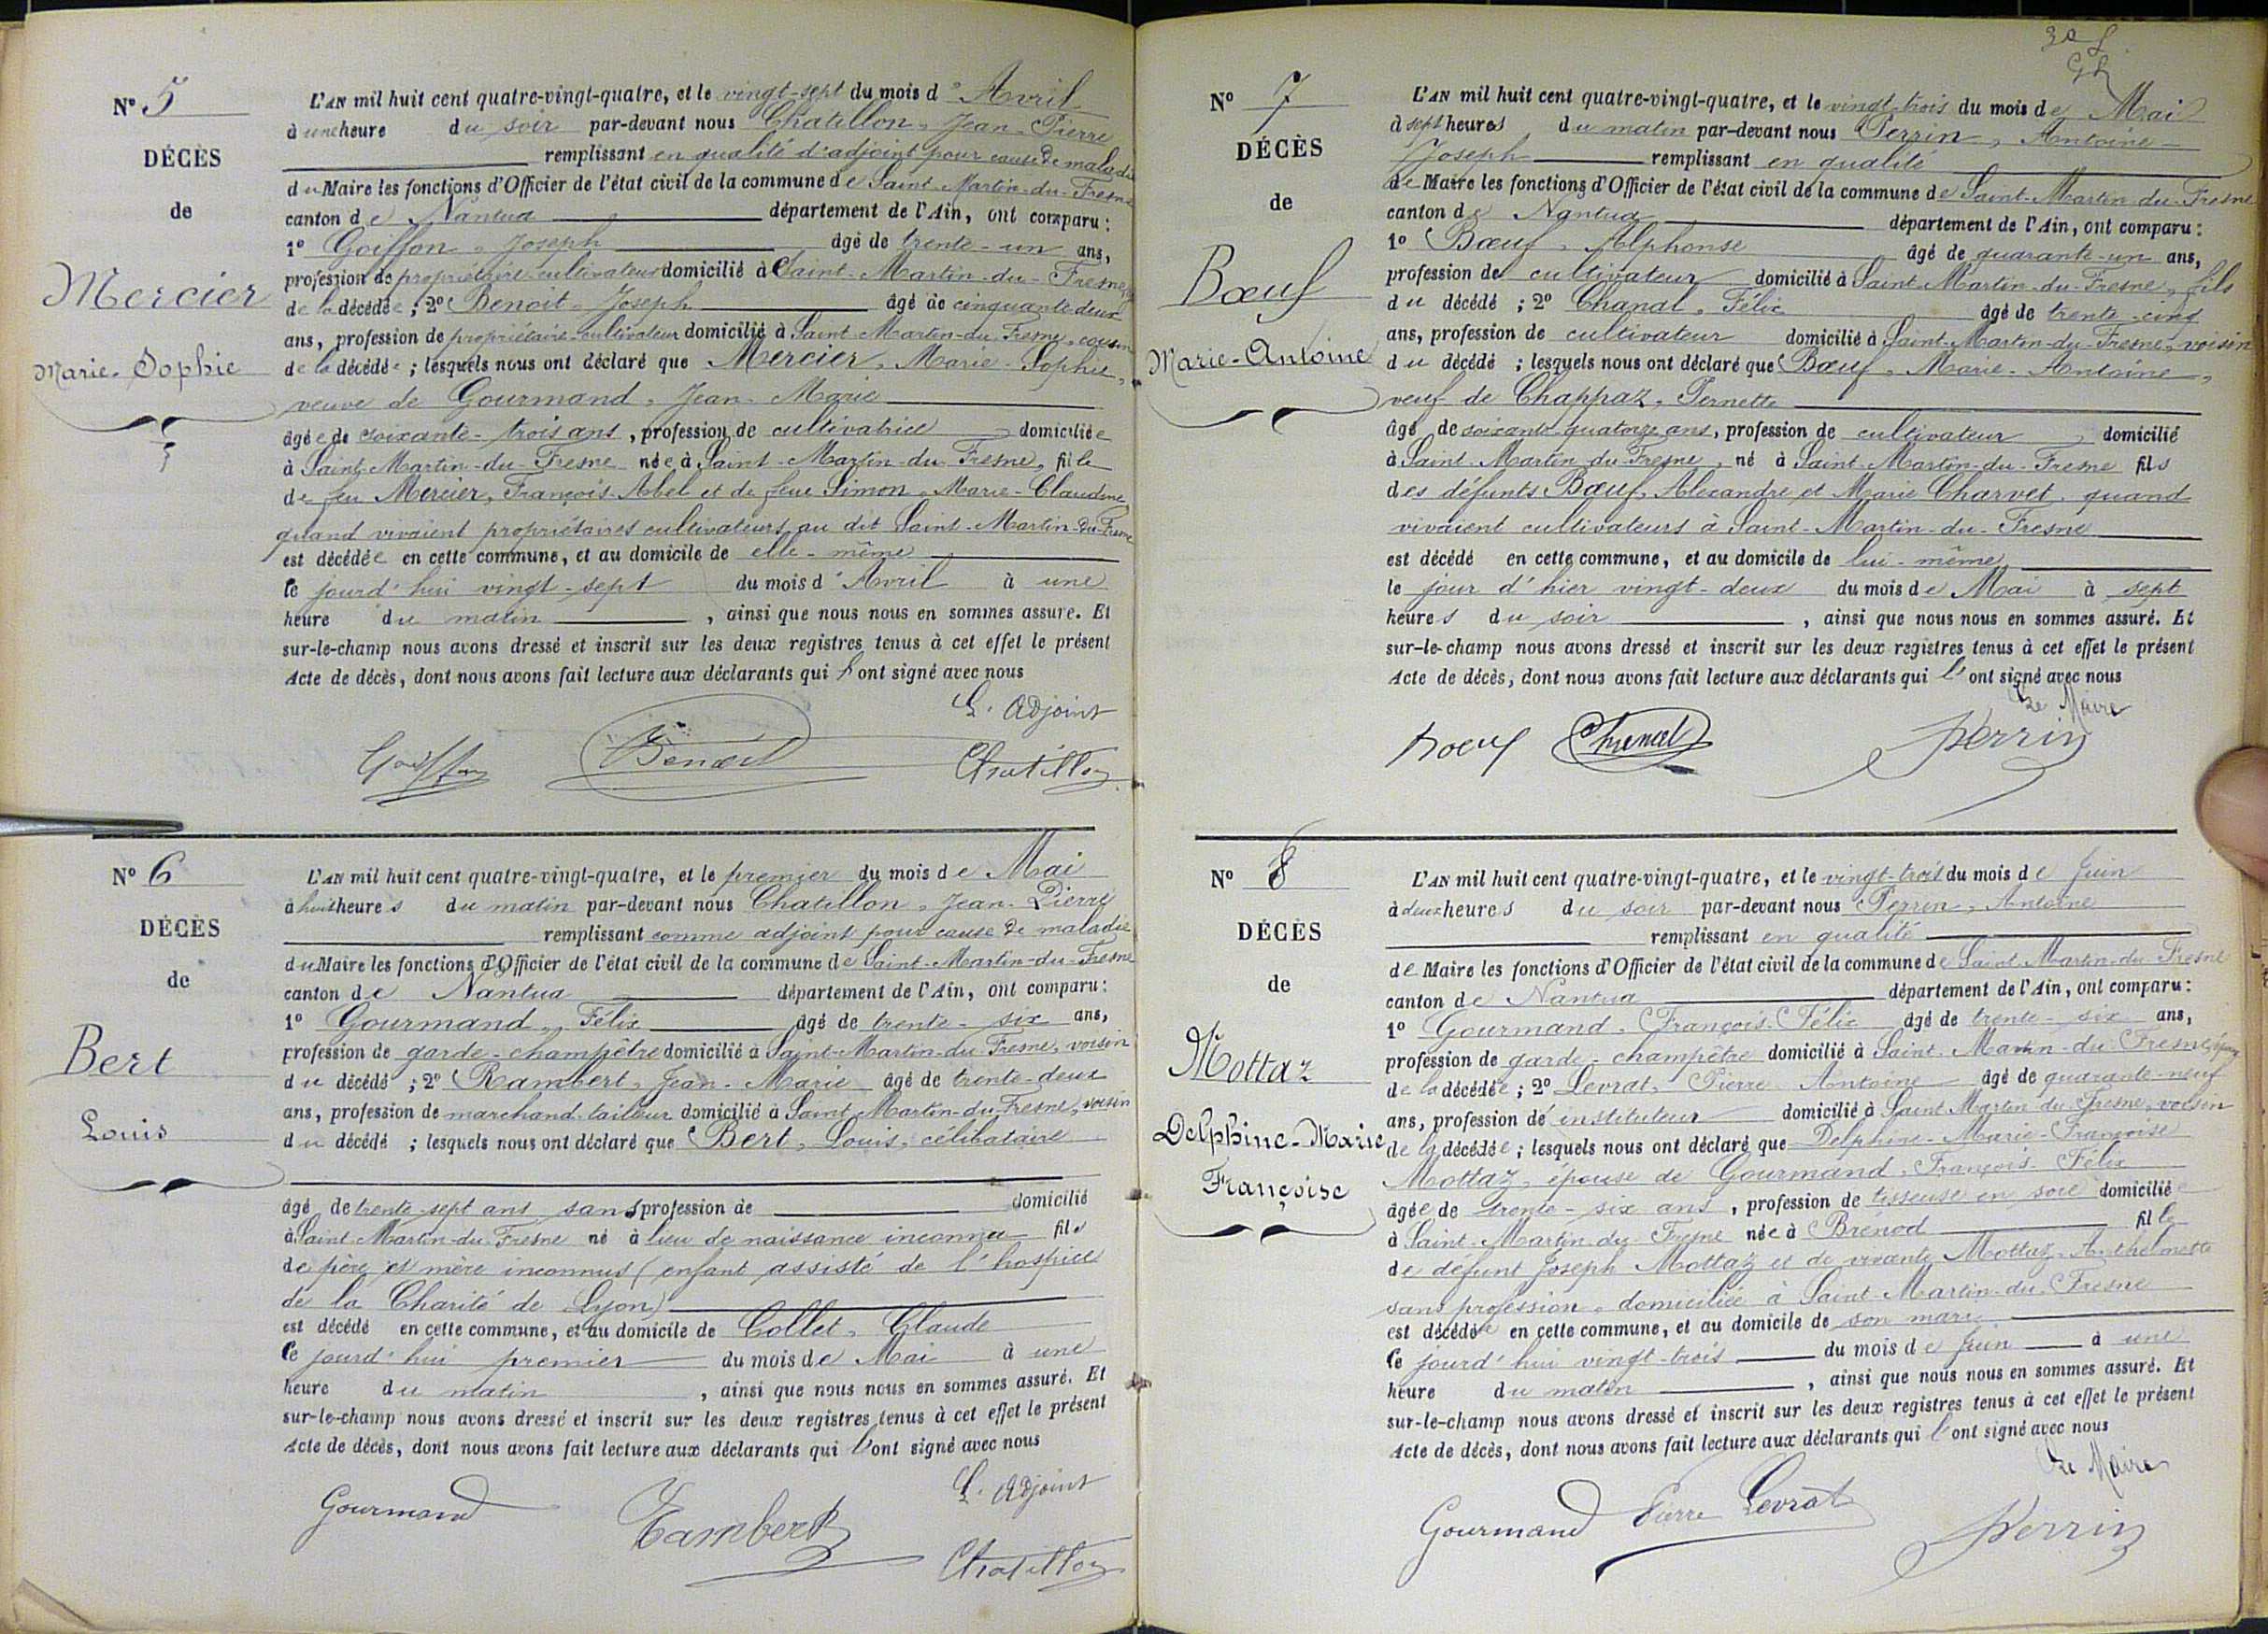 N° 5
DÉCÈS
de
Mercier
Marie-Sophie
L'AN mil huit cent quatre-vingt-quatre, et le vingt-sept du mois d'Avril
à une heure du soir par-devant nous Chatillon, Jean-Pierre
remplissant en qualité d'adjoint pour cause de maladie
du Maire les fonctions d'Officier de l'état civil de la commune de Saint-Martin-du-Fresne
canton de Nantua département de l'Ain, ont comparu :
1° Goiffon, Joseph âgé de trente-un ans,
profession de propriétaire-cultivateur domicilié à Saint-Martin-du-Fresne,
de la décédée ; 2° Benoit, Joseph âgé de cinquante-deux
ans, profession de propriétaire-cultivateur domicilié à Saint-Martin-du-Fresne, cousin
de la décédée ; lesquels nous ont déclaré que Mercier, Marie-Sophie,
veuve de Gourmand, Jean-Marie
âgée de soixante-trois ans, profession de cultivatrice domiciliée
à Saint-Martin-du-Fresne née à Saint-Martin-du-Fresne, fille
de feu Mercier, François-Abel et de feue Simon, Marie-Claudine
quand vivaient propriétaires cultivateurs au dit Saint-Martin-du-Fresne
est décédée en cette commune, et au domicile de elle-même
ce jourd'hui vingt-sept du mois d'Avril à une
heure du matin, ainsi que nous nous en sommes assuré. Et
sur-le-champ nous avons dressé et inscrit sur les deux registres tenus à cet effet le présent
Acte de décès, dont nous avons fait lecture aux déclarants qui l'ont signé avec nous
L'Adjoint
Goiffon Benoit Chatillon
N° 6
DÉCÈS
de
Bert
Louis
L'AN mil huit cent quatre-vingt-quatre, et le premier du mois de Mai
à huit heures du matin par-devant nous Chatillon, Jean-Pierre
remplissant comme adjoint pour cause de maladie
du Maire les fonctions d'Officier de l'état civil de la commune de Saint-Martin-du-Fresne
canton de Nantua département de l'Ain, ont comparu :
1° Gourmand, Félix âgé de trente-six ans,
profession de garde-champêtre domicilié à Saint-Martin-du-Fresne, voisin
du décédé ; 2° Rambert, Jean-Marie âgé de trente-deux
ans, profession de marchand-tailleur domicilié à Saint-Martin-du-Fresne, voisin
du décédé ; lesquels nous ont déclaré que Bert, Louis, célibataire
âgé de trente-sept ans sans profession de domicilié
à Saint-Martin-du-Fresne né à lieu de naissance inconnu fils
de père et mère inconnus (enfant assisté de l'hospice
de la Charité de Lyon)
est décédé en cette commune, et au domicile de Collet, Claude
ce jourd'hui premier du mois de Mai à une
heure du matin, ainsi que nous nous en sommes assuré. Et
sur-le-champ nous avons dressé et inscrit sur les deux registres tenus à cet effet le présent
Acte de décès, dont nous avons fait lecture aux déclarants qui l'ont signé avec nous
L'Adjoint
Gourmand Rambert Chatillon
N° 7
DÉCÈS
de
Bœuf
Marie-Antoine
L'AN mil huit cent quatre-vingt-quatre, et le vingt-trois du mois de Mai
à sept heures du matin par-devant nous Perrin, Antoine-
Joseph remplissant en qualité
de Maire les fonctions d'Officier de l'état civil de la commune de Saint-Martin-du-Fresne
canton de Nantua département de l'Ain, ont comparu :
1° Bœuf, Alphonse âgé de quarante-un ans,
profession de cultivateur domicilié à Saint-Martin-du-Fresne, fils
du décédé ; 2° Chanal, Félix âgé de trente-cinq
ans, profession de cultivateur domicilié à Saint-Martin-du-Fresne, voisin
du décédé ; lesquels nous ont déclaré que Bœuf, Marie-Antoine,
veuf de Chappaz, Pernette
âgé de soixante-quatorze ans, profession de cultivateur, domicilié
à Saint-Martin-du-Fresne, né à Saint-Martin-du-Fresne fils
des défunts Bœuf, Alexandre et Marie Charvet, quand
vivaient cultivateurs à Saint-Martin-du-Fresne
est décédé en cette commune, et au domicile de lui-même,
le jour d'hier vingt-deux du mois de Mai à sept
heures du soir, ainsi que nous nous en sommes assuré. Et
sur-le-champ nous avons dressé et inscrit sur les deux registres tenus à cet effet le présent
Acte de décès, dont nous avons fait lecture aux déclarants qui l'ont signé avec nous
Le Maire
Boeuf Chanal Perrin
N° 8
DÉCÈS
de
Mottaz
Delphine-Marie
Françoise
L'AN mil huit cent quatre-vingt-quatre, et le vingt-trois du mois de Juin
à deux heures du soir par-devant nous Perrin, Antoine
remplissant en qualité
de Maire les fonctions d'Officier de l'état civil de la commune de Saint-Martin-du-Fresne
canton de Nantua département de l'Ain, ont comparu :
1° Gourmand, François-Félix âgé de trente-six ans,
profession de garde-champêtre domicilié à Saint-Martin-du-Fresne, époux
de la décédée ; 2° Levrat, Pierre Antoine âgé de quarante-neuf
ans, profession de instituteur domicilié à Saint-Martin-du-Fresne, voisin
de la décédée ; lesquels nous ont déclaré que Delphine-Marie-Françoise
Mottaz, épouse de Gourmand, François-Félix
âgée de trente-six ans, profession de tisseuse en soie domiciliée
à Saint-Martin-du-Fresne née à Brenod fille
de défunt Joseph Mottaz et de vivante Mottaz, Anthelmette
sans profession, domiciliée à Saint-Martin-du-Fresne
est décédée en cette commune, et au domicile de son mari
ce jourd'hui vingt-trois du mois de Juin à une
heure du matin, ainsi que nous nous en sommes assuré. Et
sur-le-champ nous avons dressé et inscrit sur les deux registres tenus à cet effet le présent
Acte de décès, dont nous avons fait lecture aux déclarants qui l'ont signé avec nous
Le Maire
Gourmand Pierre Levrat Perrin